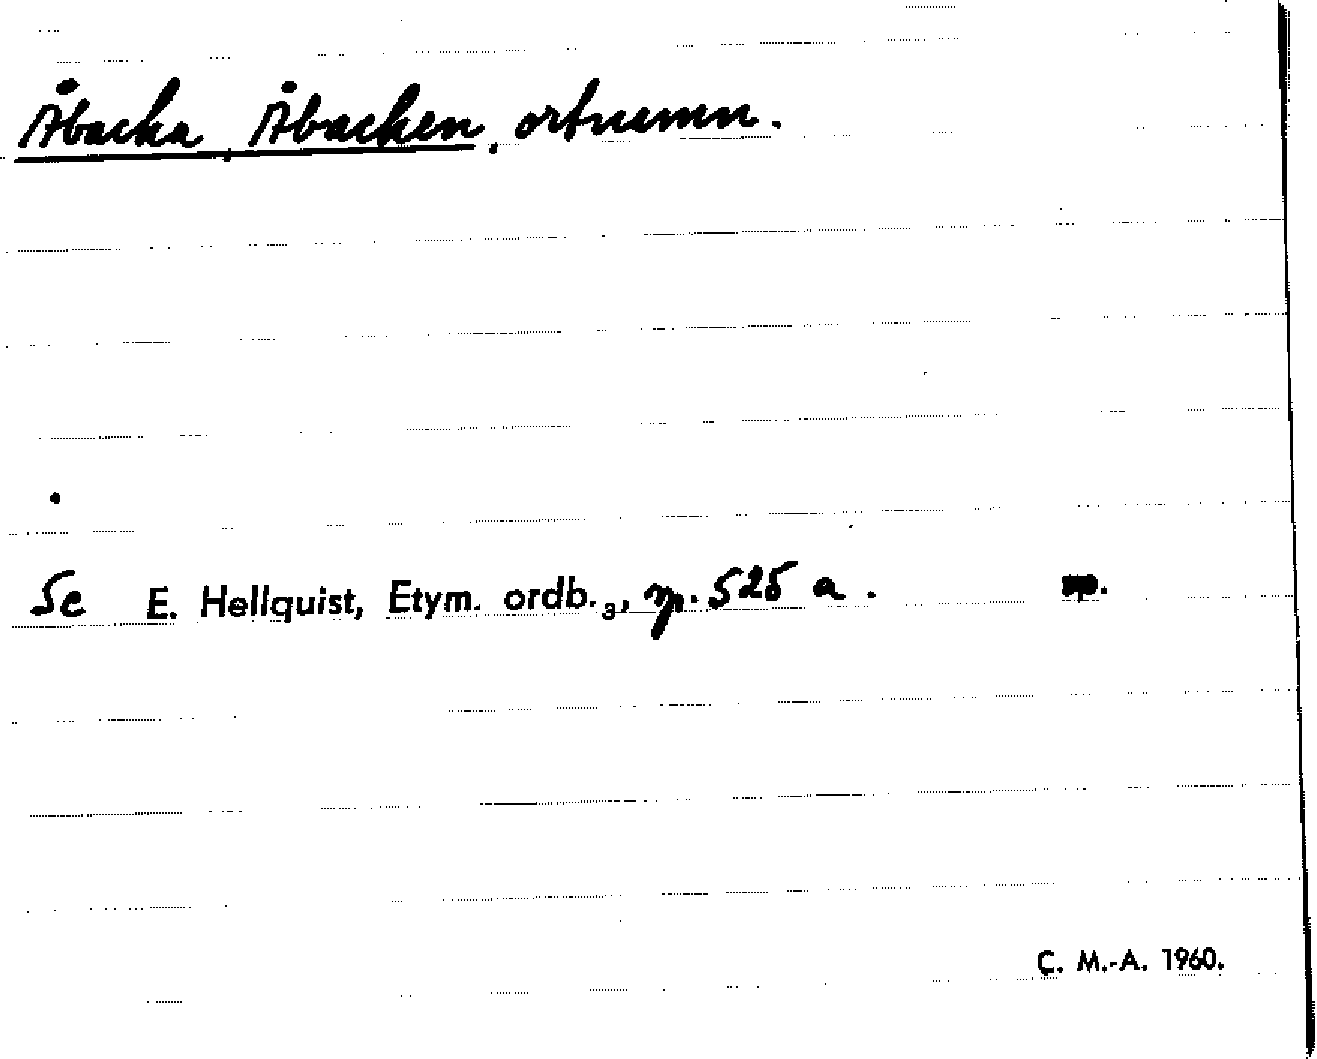 Åbacka, Åbacken, ortnamn.
Se E. Hellquist, Etym. ordb.₃, sp. 525 a.
C. M.-A. 1960.